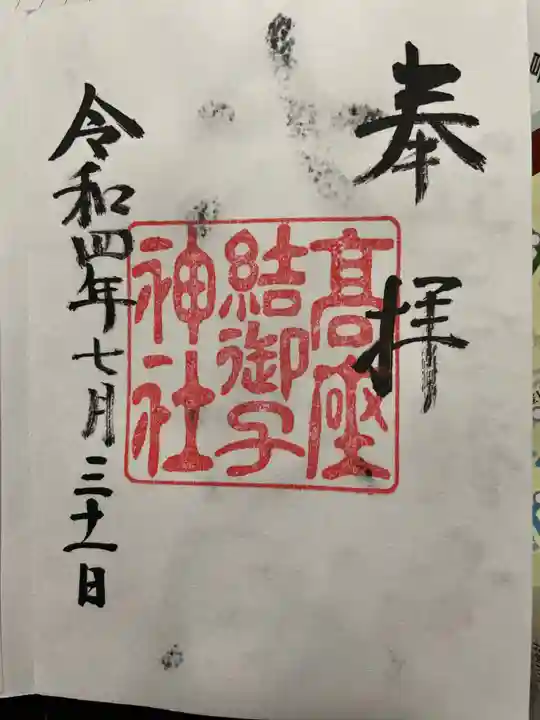 奉拝
髙座
結御子
神社
令和四年七月三十一日